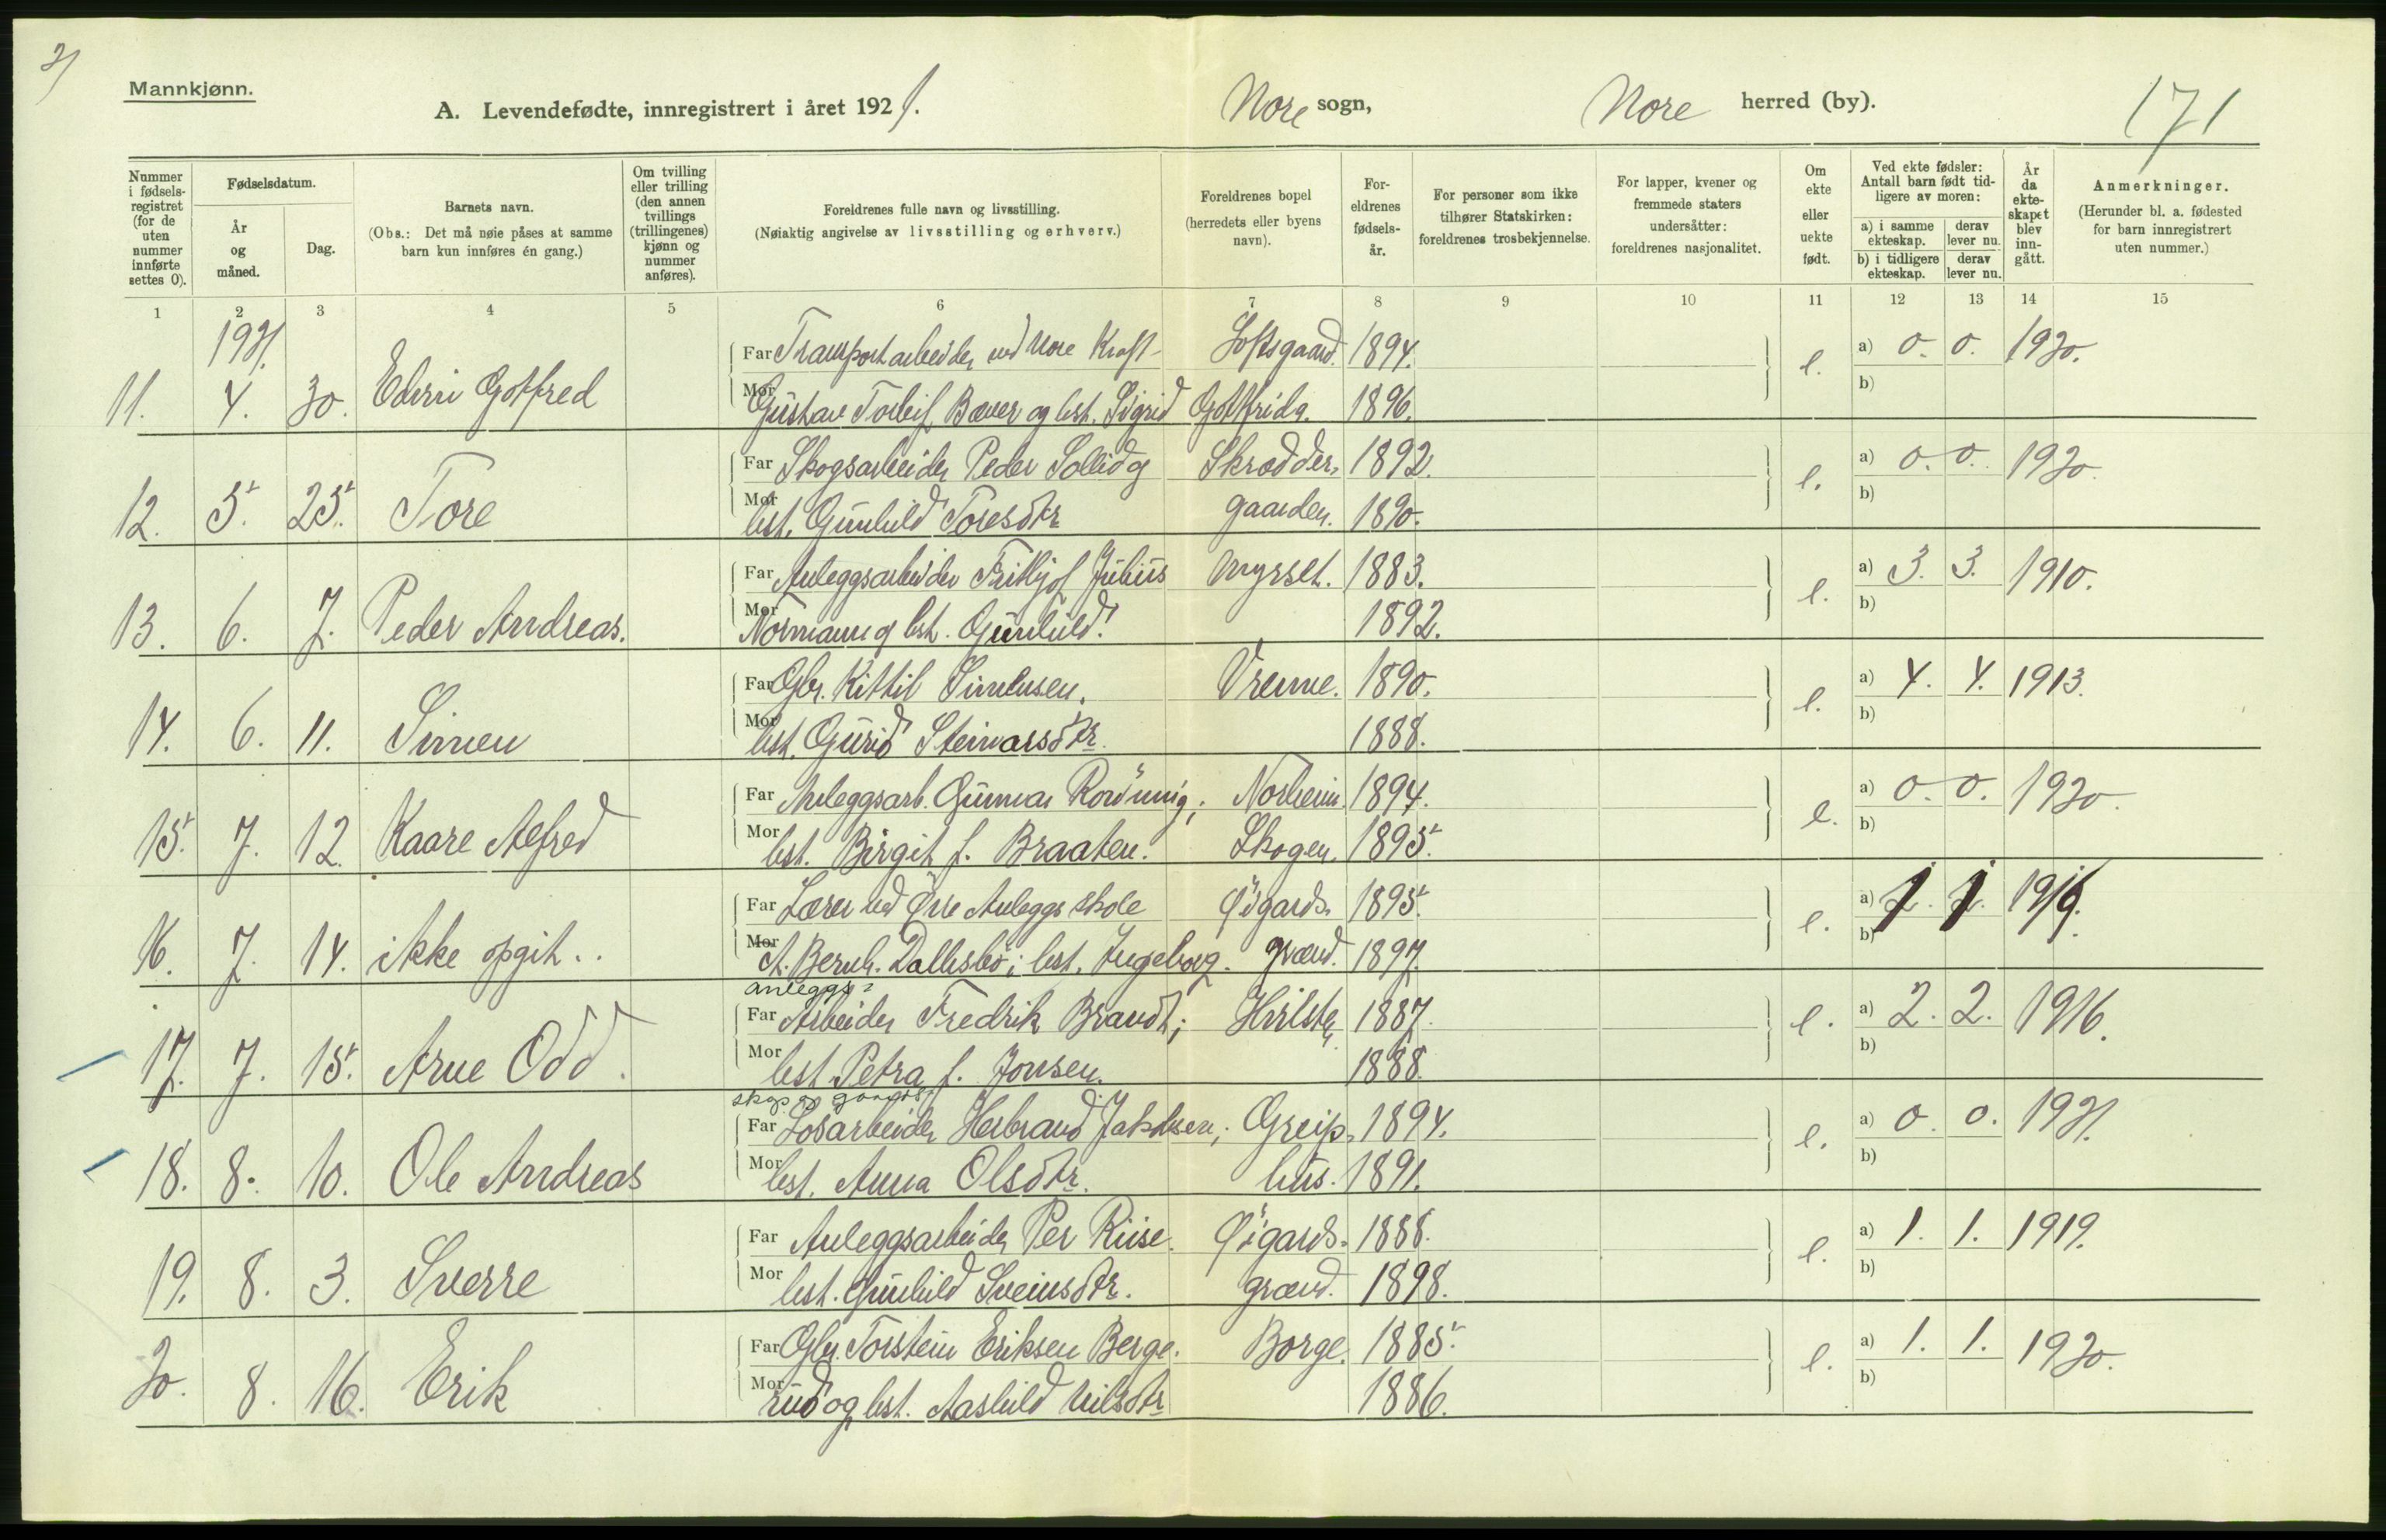 2)
Mannkjønn.
A. Levendefødte, innregistrert i året 1921.
Nore sogn,
Nore herred (by).
171
Nummer i fødselsregistret (for de uten nummer innførte settes 0).
Fødselsdatum.
År og måned.
Dag.
Barnets navn.
(Obs.: Det må nøie påses at samme barn kun innføres én gang.)
Om tvilling eller trilling (den annen tvillings (trillingenes) kjønn og nummer anføres).
Foreldrenes fulle navn og livsstilling.
(Nøiaktig angivelse av livsstilling og erhverv.)
Foreldrenes bopel
(herredets eller byens navn).
Foreldrenes fødselsår.
For personer som ikke tilhører Statskirken: foreldrenes trosbekjennelse.
For lapper, kvener og fremmede staters undersåtter: foreldrenes nasjonalitet.
Om ekte eller uekte født.
Ved ekte fødsler: Antall barn født tidligere av moren:
a) i samme ekteskap.
derav lever nu.
b) i tidligere ekteskap.
derav lever nu.
År da ekteskapet blev inngått.
Anmerkninger.
(Herunder bl. a. fødested for barn innregistrert uten nummer.)
1 2 3 4 5 6 7 8 9 10 11 12 13 14 15
1921.
Far Transportarbeider ved Nore Kraft- Loftsgaard. 1894. a) 0. 0. 1920.
11. 4. 30. Edvin Gotfred e.
Mor Gustav Torleif Bæver og hst. Sigrid Gotfrida. 1896. b)
Far Skogsarbeider Peder Sollid og Skrædder- 1892. a) 0. 0. 1920.
12. 5. 25. Tore e.
Mor hst. Gunhild Toresdtr gaarden. 1890. b)
Far Anleggsarbeider Fritjof Julius Myrset. 1883. a) 3. 3. 1910.
13. 6. 7. Peder Andreas. e.
Mor Normann og hst. Gunhild. 1892. b)
Far Gbr. Kittil Simensen. Vrenne. 1890. a) 4. 4. 1913.
14. 6. 11. Simen e.
Mor hst. Gurid Steinarsdtr. 1888. b)
Far Anleggsarb. Gunnar Rønning; Norheim 1894. a) 0. 0. 1920.
15. 7. 12. Kaare Alfred e.
Mor hst. Birgit f. Braaten. Skogen. 1895. b)
Far Lærer ved Øvre Anleggs skole Øigards- 1895. a) 1 1 1919.
16. 7. 14. ikke opgit.. e.
Mor A. Bernh. Dallesbø; hst. Ingeborg. grænd. 1897. b)
anleggs=
Far Arbeider Fredrik Brandt; 1887. a) 2. 2. 1916.
17. 7. 15. Arne Odd. e.
Mor hst. Petra f. Jonsen. 1888. b)
skogs og gaards
Far Løsarbeider Herbrand Jakobsen; Greip- 1894. a) 0. 0. 1921.
18. 8. 10. Ole Andreas e.
Mor hst. Anna Olsdtr. hus. 1891. b)
Far Anleggsarbeider Per Riise. Øigards- 1888. a) 1. 1. 1919.
19. 8. 3. Sverre e.
Mor hst. Gunhild Sveinsdtr. grænd. 1898. b)
Far Gbr. Torstein Eriksen Berge- Borge. 1885. a) 1. 1. 1920.
20. 8. 16. Erik e.
Mor rud og hst. Aashild Nilsdtr 1886. b)